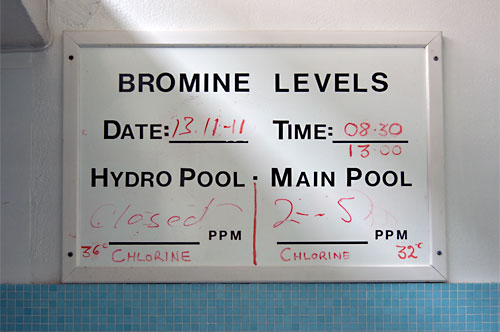 BROMINE LEVELS
DATE: 13.11.11 TIME: 08.30
13.00
HYDRO POOL . MAIN POOL
Closed PPM 2--5 PPM
36°C CHLORINE CHLORINE 32°C